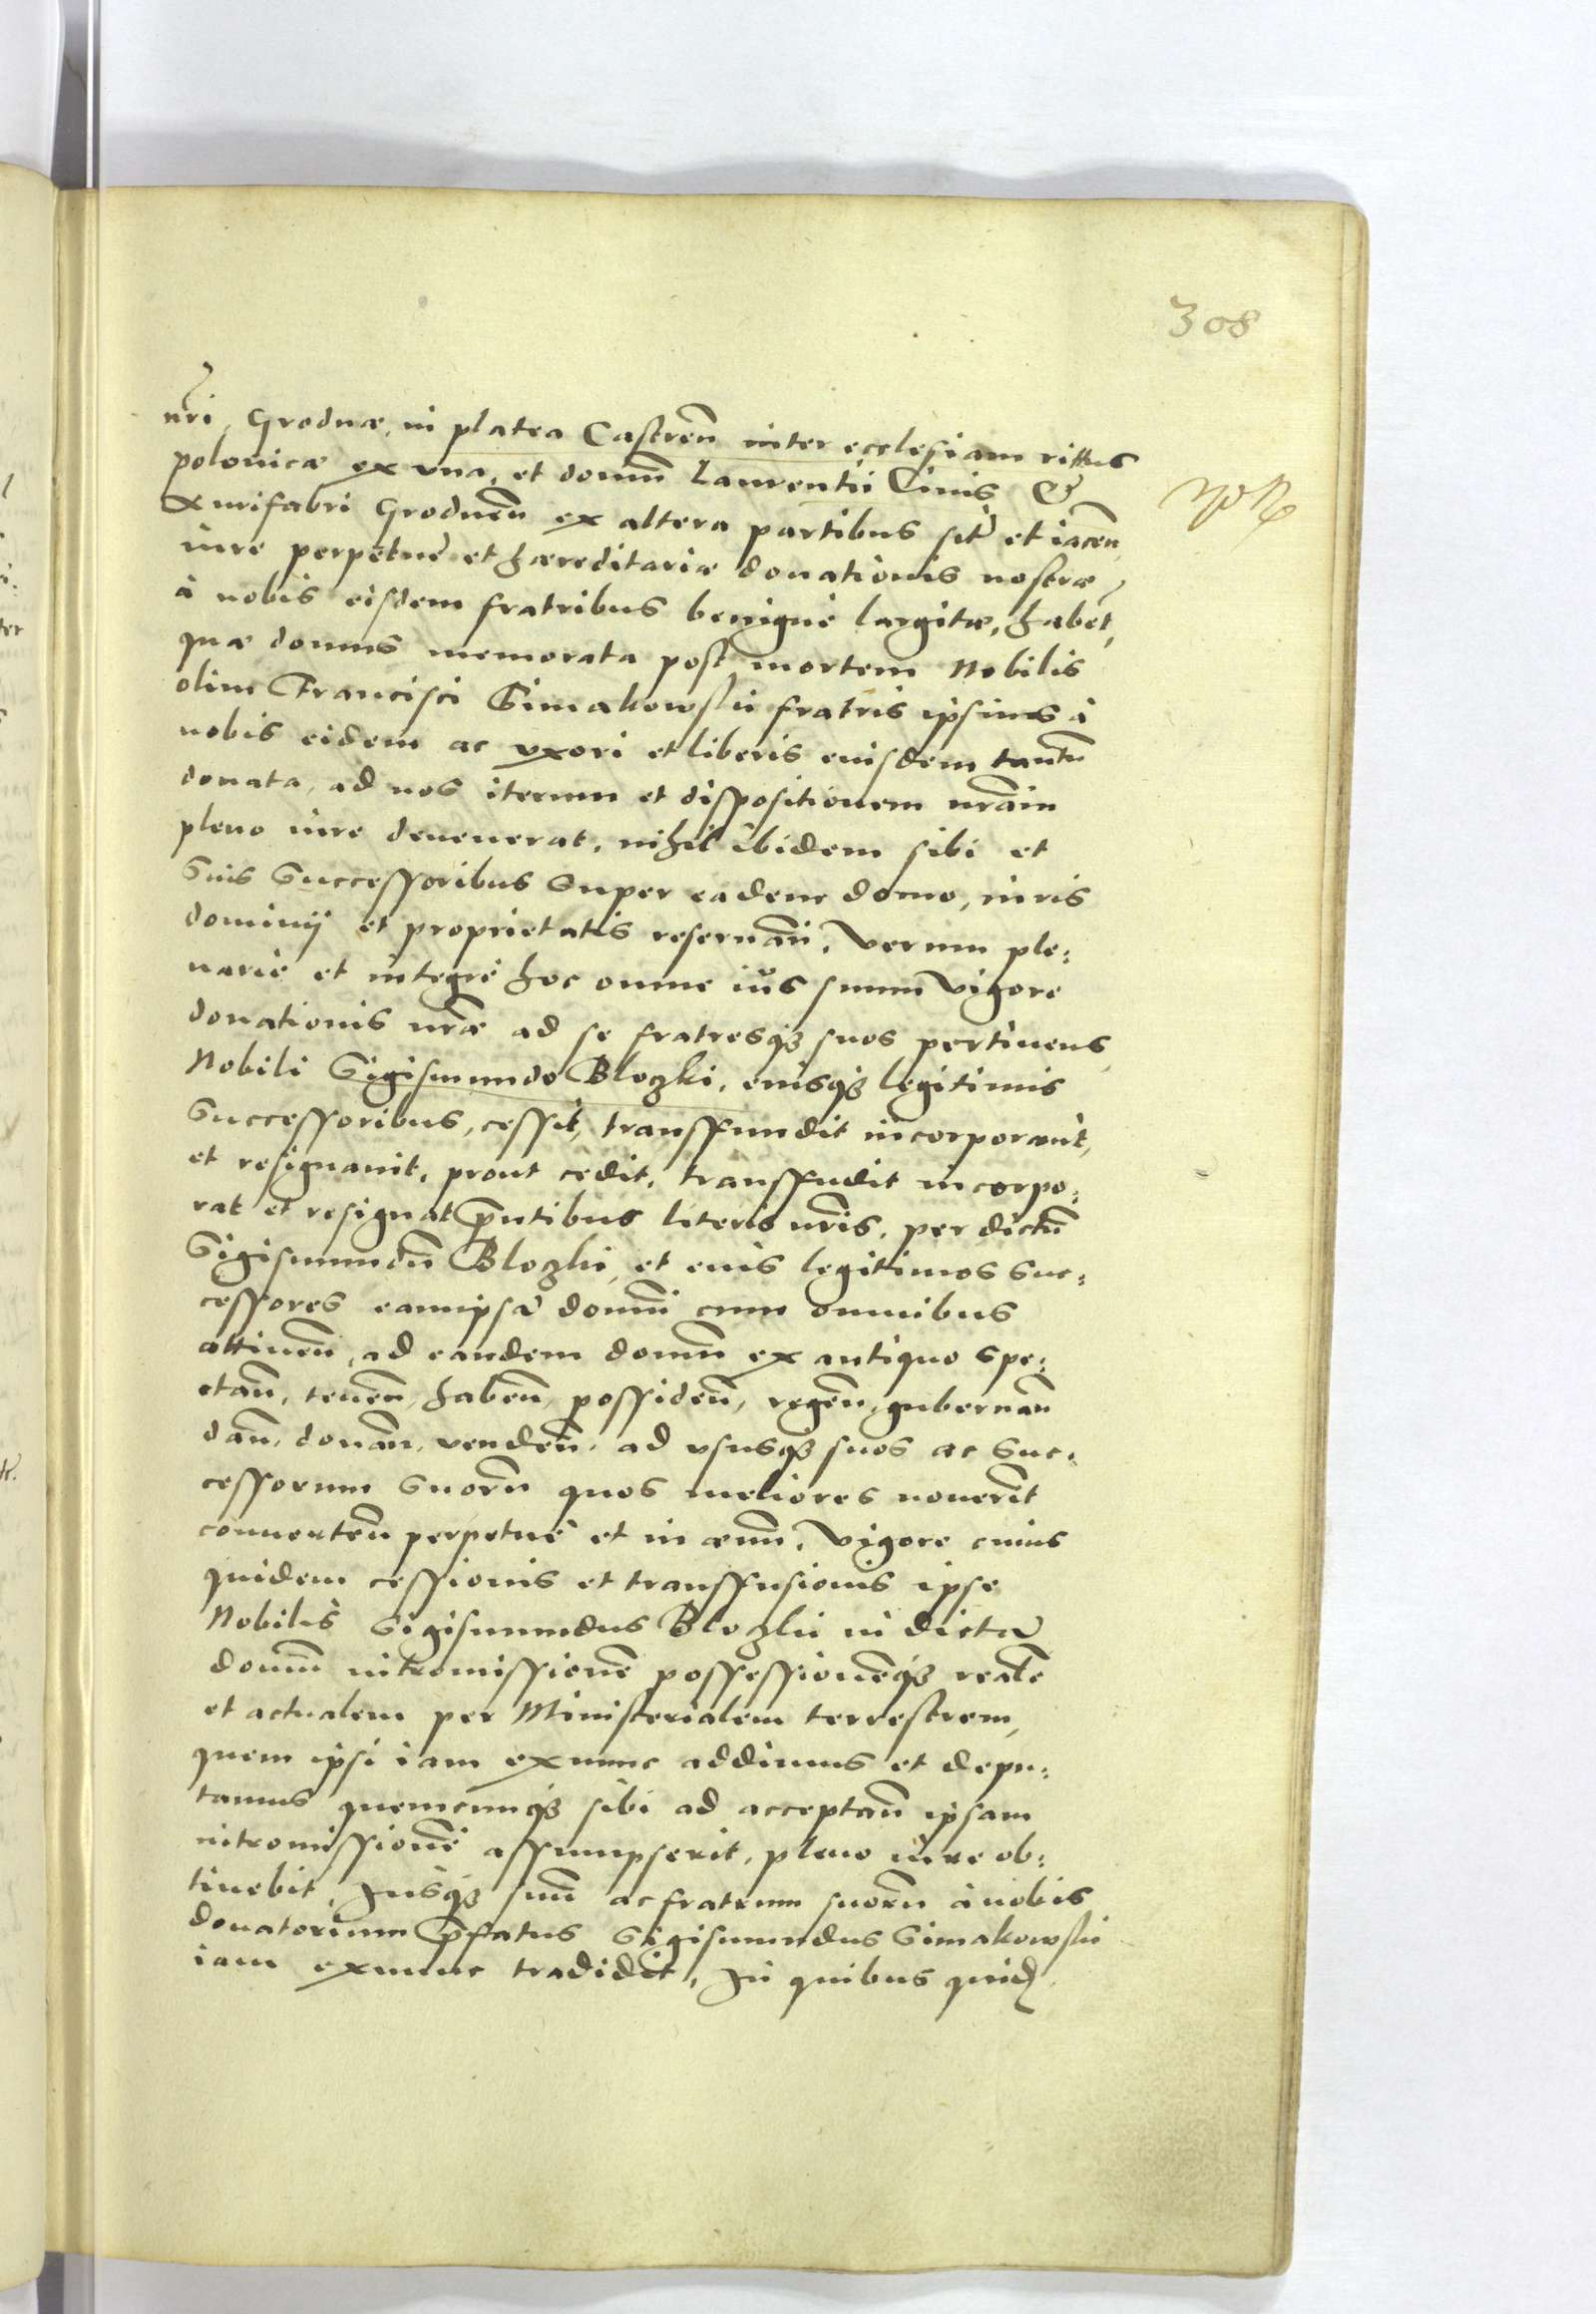 308
nr̃i, Grodnæ, in platea Castren̄ inter ecclesiam rittus
polonicæ ex vna, et domū Laurentii Ciuis &
Aurifabri Grodnen̄ ex altera partibus sitā et iacen̄,
iure perpetuè et hæreditariæ donationis nostræ,
à nobis eisdem fratribus benignè largitæ, habet,
quæ domus memorata post mortem Nobilis
olim Francisci Simakowskii fratris ipsius à
nobis eidem ac vxori et liberis eiusdem tantū
donata, ad nos iterum et dispositionem nr̃am
pleno iure deuenerat, nihil ibidem sibi et
Suis Successoribus Super eadem domo, iuris
dominij et proprietatis reseruan̄, verum ple:
nariè et integrè hoc omne ius suum vigore
donationis nr̃æ ad se fratresqȝ suos pertinens,
Nobili Sigismundo Blozki, eiusqȝ legitimis
Successoribus, cessit, transffundit incorporauit,
et resignauit, prout cedit, transffudit incorpo:
rat et resignat p̄ntibus literis nr̃is, per dictū
Sigismundū Blozki, et eius legitimos Suc:
cessores eamipsā domū cum omnibus
attinen̄, ad eandem domū ex antiquo spe:
ctan̄, tenen̄, haben̄, possiden̄, regen̄, gubernan̄
dan̄, donan̄, venden̄, ad vsusqȝ suos ac Suc:
cessorum Suorū quos meliores nouerit
conuerten̄ perpetuè et in æuū, vigore cuius
quidem cessionis et transffusionis ipse
Nobilis Sigismundus Blozkii in dictā
domū intromissionē possessionēqȝ realē
et actualem per Ministerialem terrestrem,
quem ipsi iam exnunc addimus et depu:
tamus quemcunqȝ sibi ad acceptan̄ ipsam
intromissionē assumpserit, pleno iure ob:
tinebit, Jusqȝ suū ac fratrum suorū à nobis
donatorium p̄fatus Sigismundus Simakowskii
iam exnunc tradidit, In quibus quidē